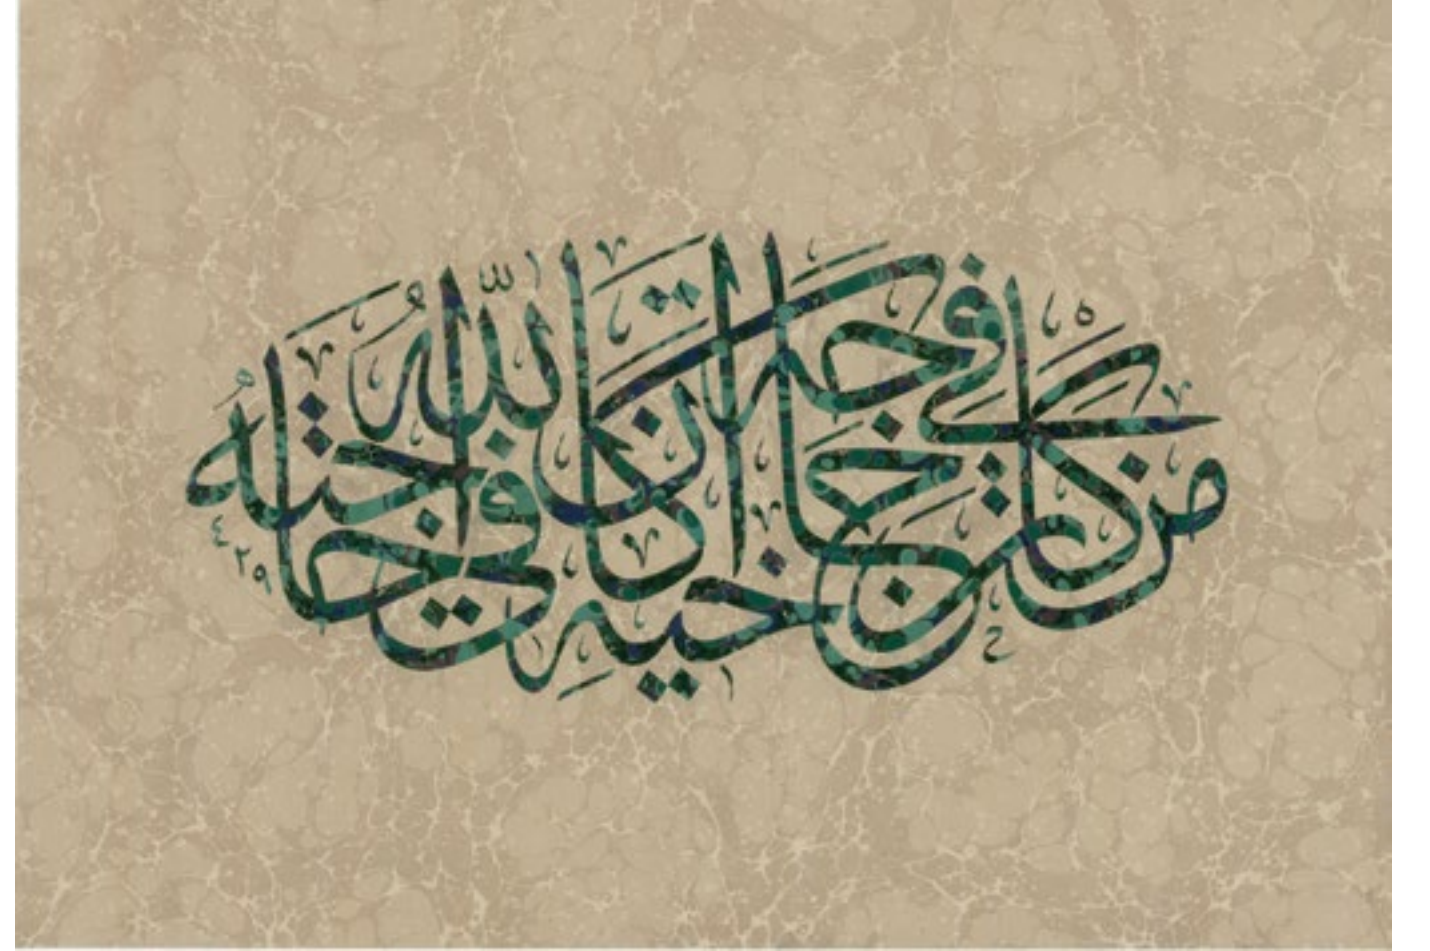 من كان في حاجة اخيه كان الله في حاجته